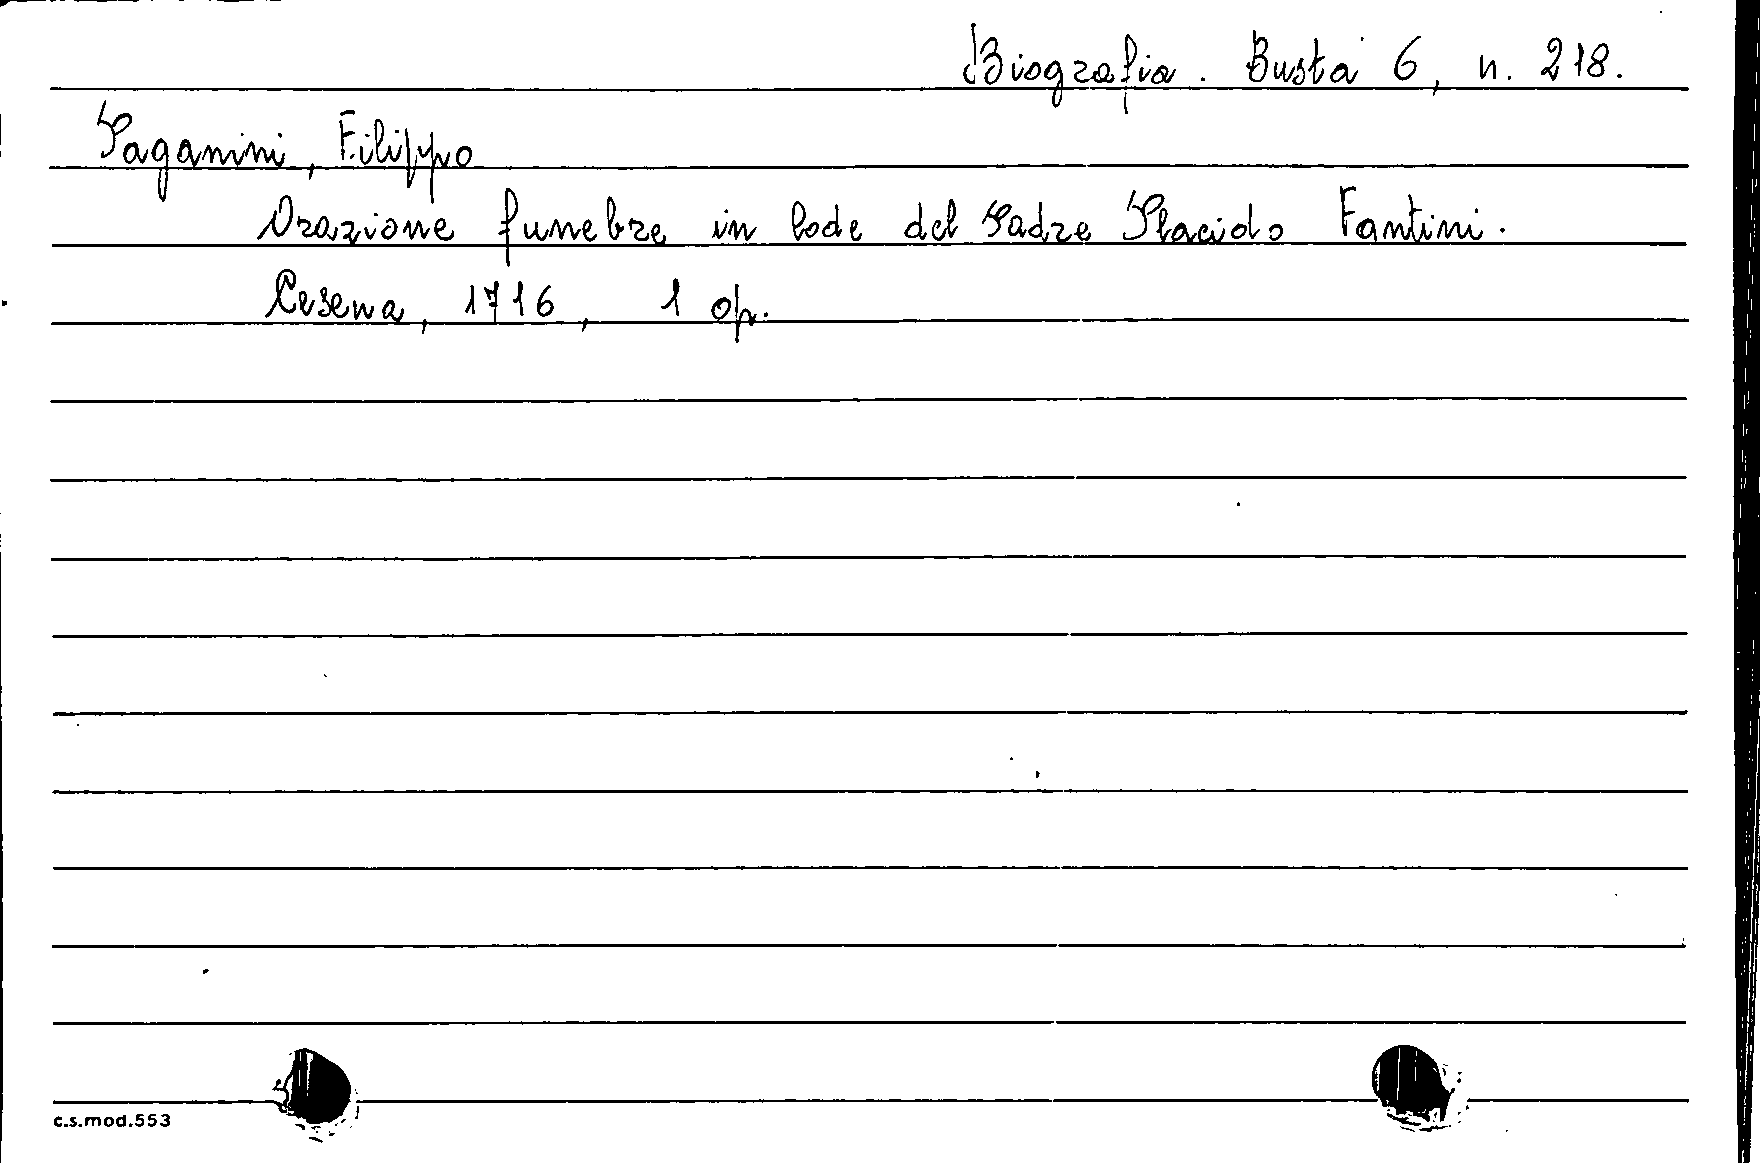 Biografia. Busta 6, n. 218.
Paganini, Filippo
Orazione funebre in lode del Padre Placido Fantini.
Cesena, 1716, 1 op.
c.s.mod.553